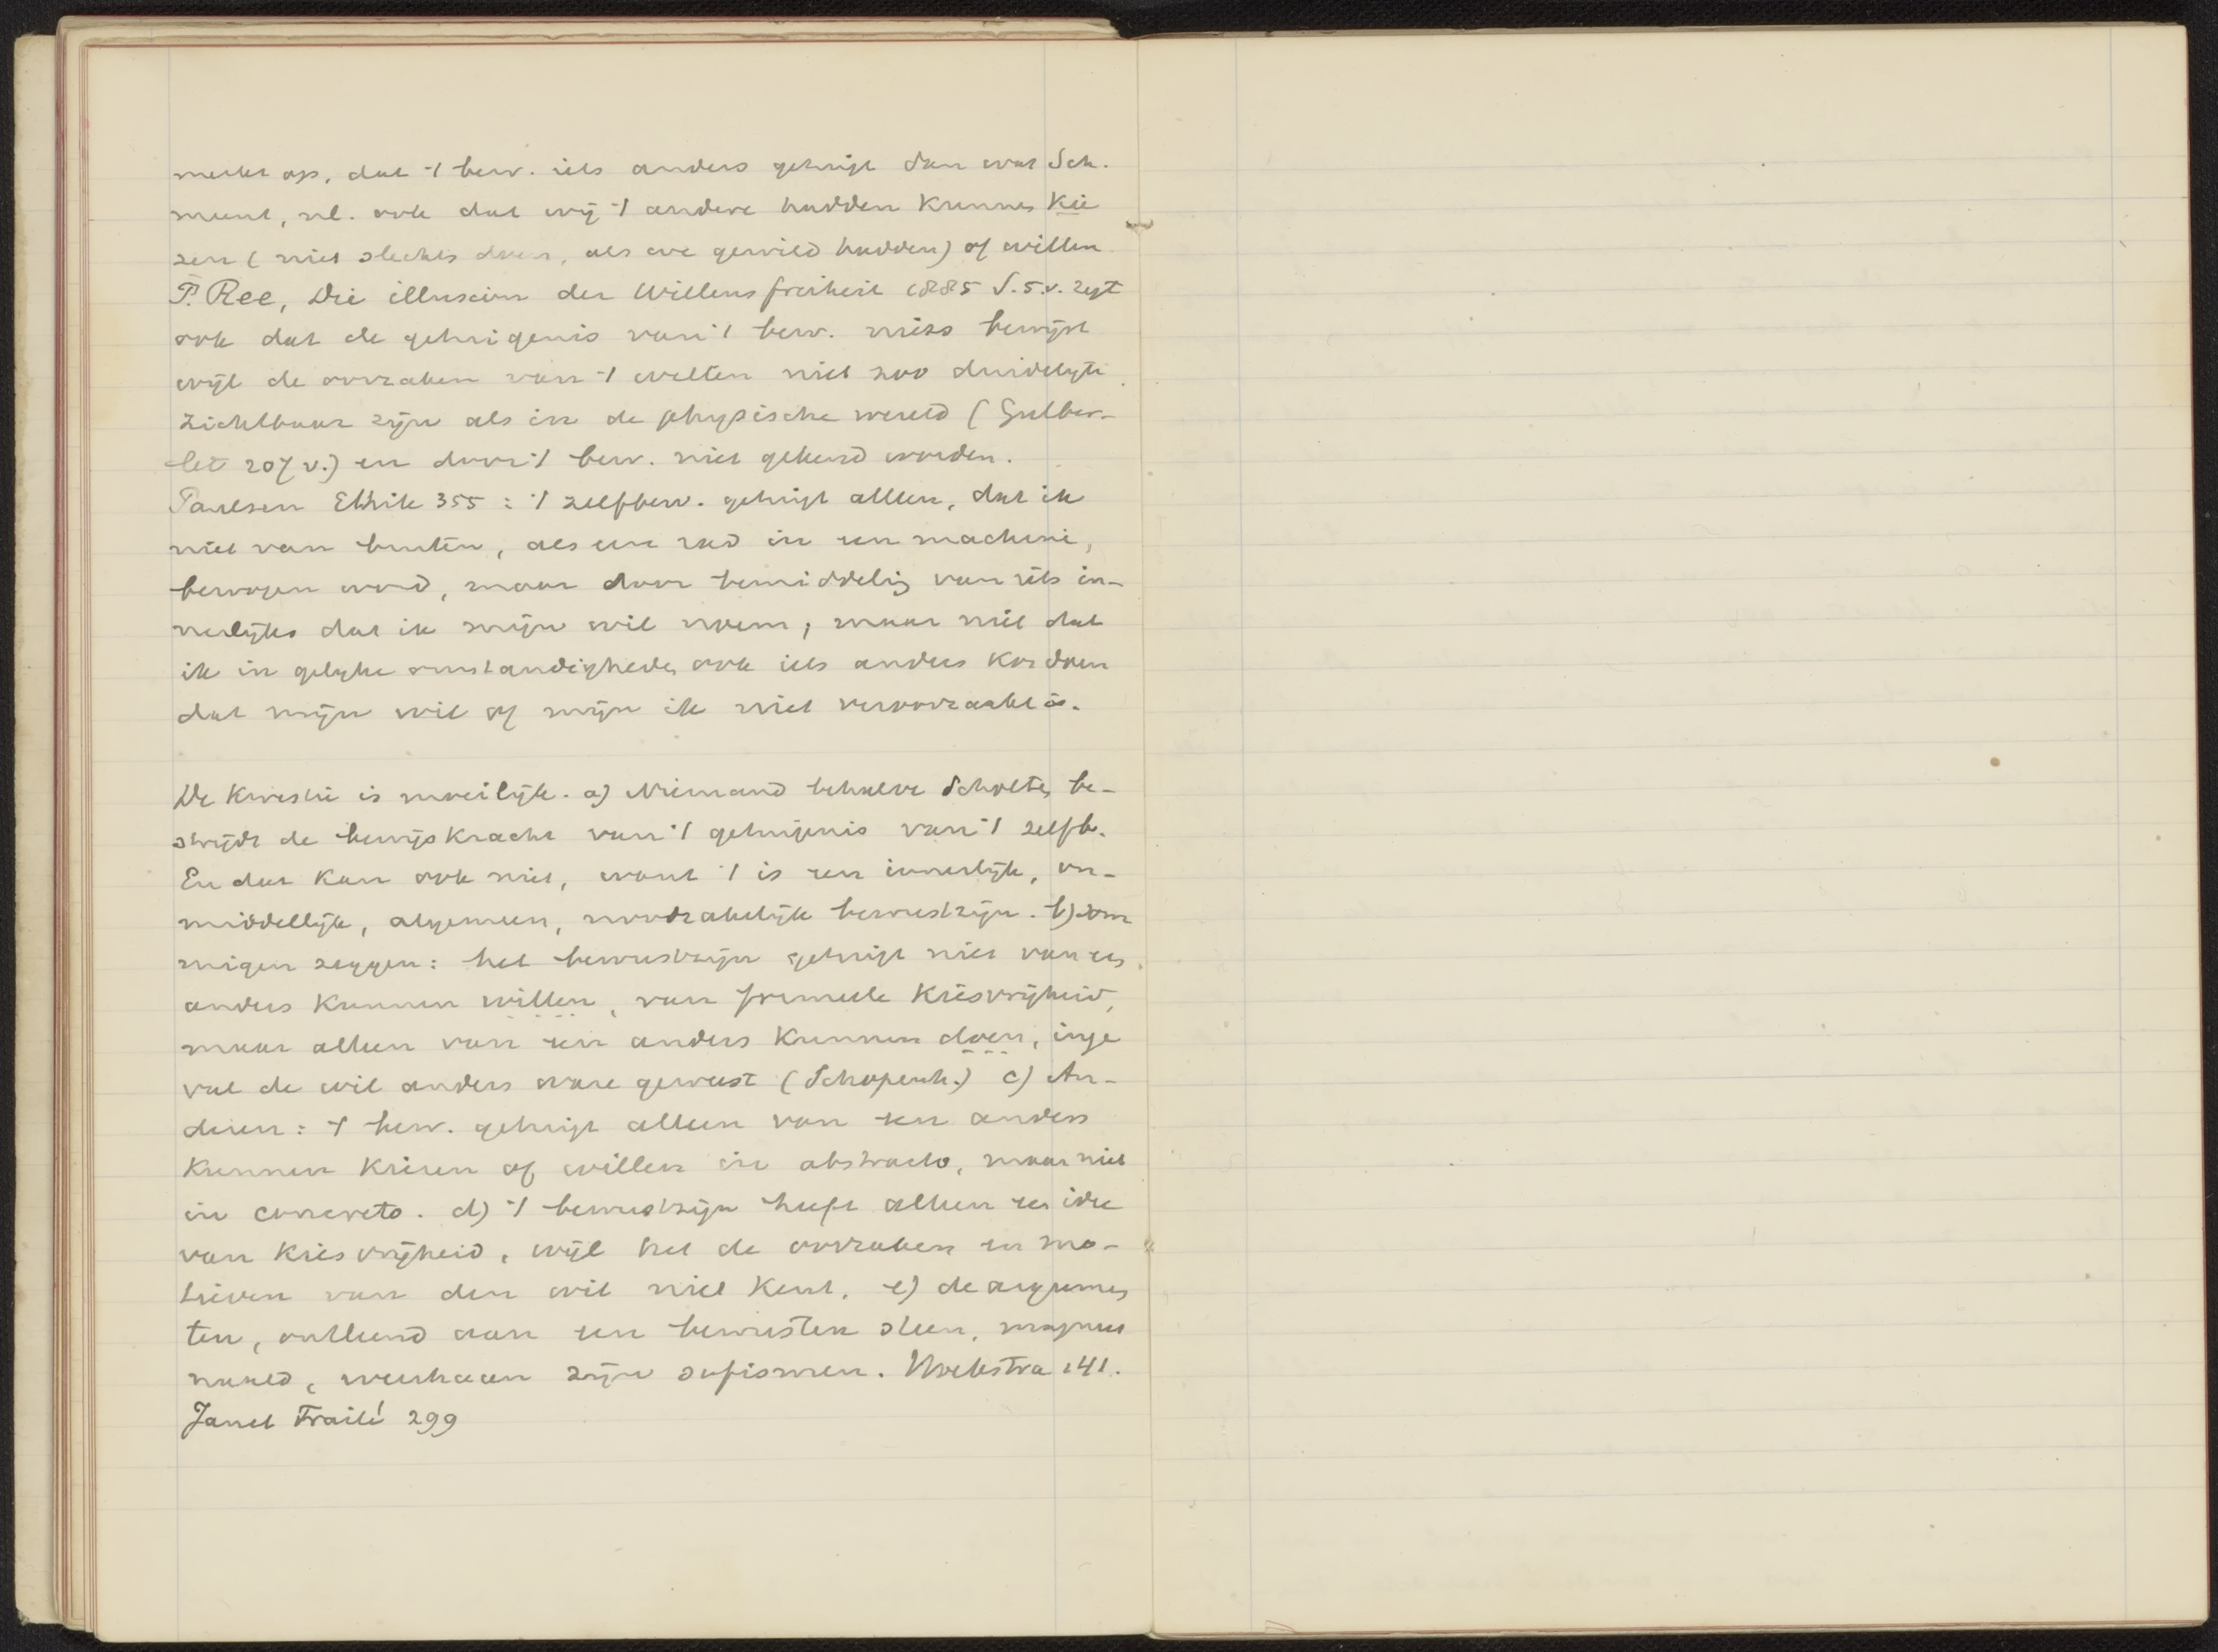 merkt op, dat 't bew. iets anders getuigt dan wat Sch.
meent, nl. ook dat wij 't andere hadden kunnen kie
zen (niet slechts doen, als we gewild hadden) of willen
P. Ree, Die illusion der Willensfreiheit 1885 S. 5.v. zegt
ook dat de getuigenis van 't bew. niets bewijst
wijl de oorzaken van 't willen niet zoo duidelijk
zichtbaar zijn als in de physische wereld (Gutber-
let 207 v.) en door 't bew. niet gekend worden.
Paulsen Ethik 355: 't zelfbew. getuigt alleen, dat ik
niet van buiten, als een rad in een machine,
bewogen word, maar door bemiddelig van iets in-
nerlijks dat ik mijn wil noem; maar niet dat
ik in gelijke omstandigheden ook iets anders kon doen
dat mijn wil of mijn ik niet veroorzaakt is.
De kwestie is moeilijk. a) Niemand behalve Scholten be-
strijdt de bewijskracht van 't getuigenis van 't zelfb.
En dat kan ook niet, want 't is een innerlijk, on-
middellijk, algemeen, noodzakelijk bewustzijn. b) Som
migen zeggen: het bewustzijn getuigt niet van een
anders kunnen willen, van formeele kiesvrijheid,
maar alleen van een anders kunnen doen, inge
val de wil anders ware geweest (Schopenh.) c) An-
deren: 't bew. getuigt alleen van een anders
kunnen kiezen of willen in abstracto, maar niet
in concreto. d) 't bewustzijn heeft alleen een idee
van kiesvrijheid, wijl het de oorzaken en mo-
tieven van den wil niet kent. e) de argumen
ten, ontleend aan een bewusten steen, magneet
naald, weerhaan zijn sofismen. Hoekstra 141.
Janet Traité 299